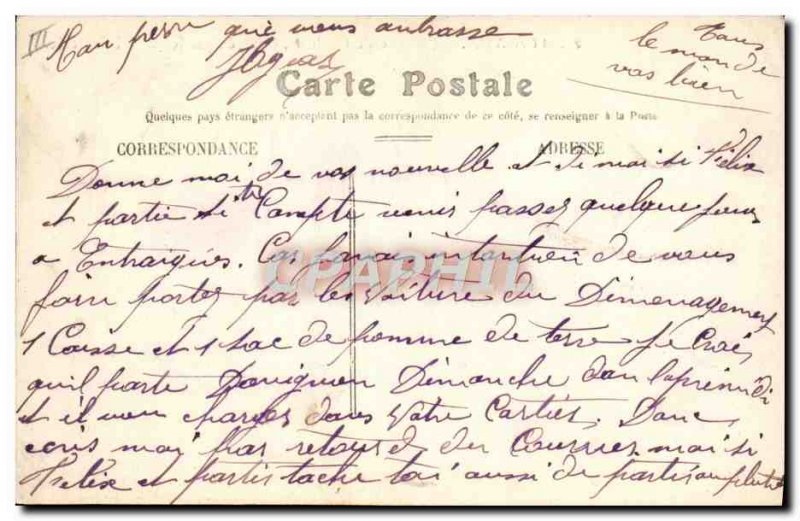 III
Ton pere qui vous embrasse
Tous
le monde
vas bien
Carte Postale
Quelques pays étrangers n'acceptent pas la correspondance de ce côté, se renseigner à la Poste
CORRESPONDANCE
ADRESSE
Donne moi de vos nouvelle et di moi si Félix
et partie si tu Compte venir passer quelque jour
a Entraigues. Car javais intantien de vous
faire porter par les voiture du Déménagement
1 Caisse et 1 sac de pomme de terre je Crois
quil parte Davignon Dimanche dan laprémidi
et il von charger dans votre Cartier. Donc
ecris moi par retour du Courrier moi si
Félix et partis tache toi aussi de partir au plutot
CPAPHIL